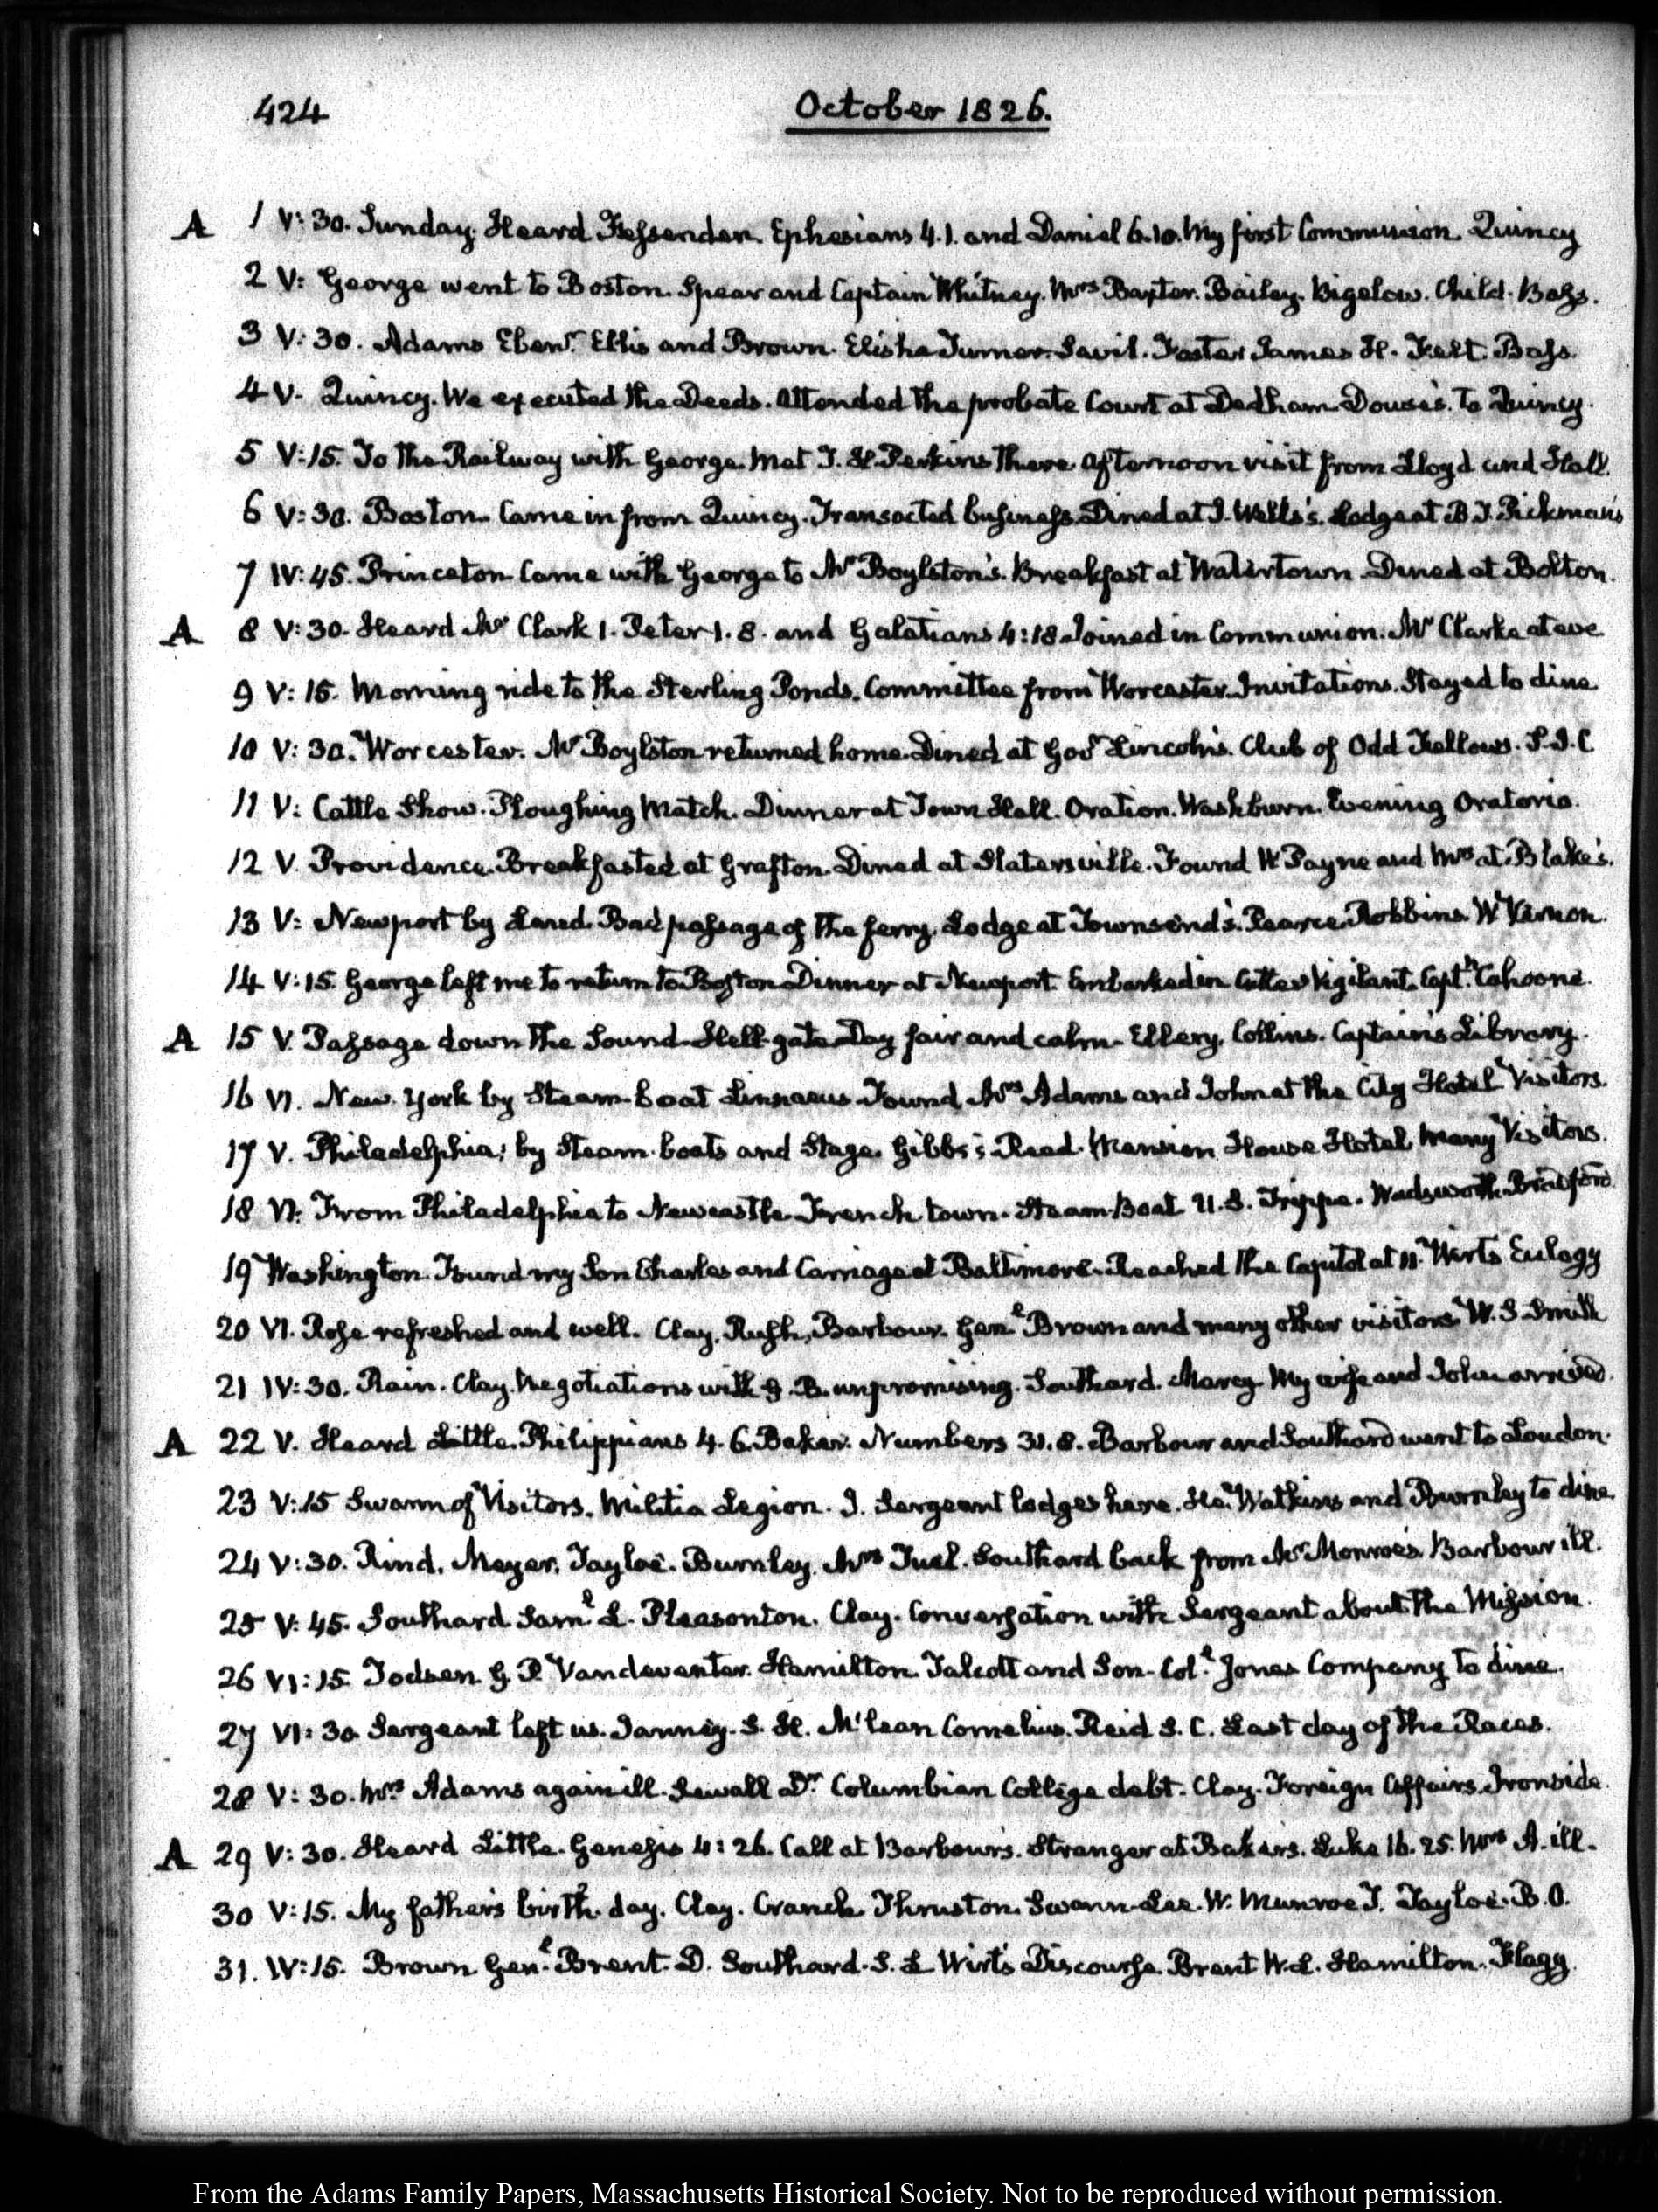 424
October 1826.
A 1 V: 30. Sunday. Heard Fessenden. Ephesians 4.1. and Daniel 6.10. My first Communion. Quincy
2 V: George went to Boston. Spear and Captain Whitney. Mrs Baxter. Bailey. Bigelow. Child. Bass.
3 V: 30. Adams Ebenr. Ellis and Brown. Elisha Turner. Savil. Foster James H. Felt. Bass.
4 V. Quincy. We executed the Deeds. Attended the probate Court at Dedham. Douse's. To Quincy.
5 V: 15. To the Railway with George. Met T. H. Perkins there. Afternoon visit from Lloyd and Hall.
6 V: 30. Boston. Came in from Quincy. Transacted business. Dined at J. Wells's. Lodge at B. T. Pickman's
7 IV: 45. Princeton. Came with George to Mr Boylston's. Breakfast at Watertown. Dined at Bolton.
A 8 V: 30. Heard Mr Clark 1. Peter 1. 8. and Galatians 4:18 Joined in Communion. Mr Clarke at eve
9 V: 15. Morning ride to the Sterling Ponds. Committee from Worcester. Invitations. Stayed to dine
10 V: 30. Worcester. Mr Boylston returned home. Dined at Govr Lincoln's. Club of Odd Fellows. F.I.C
11 V: Cattle Show. Ploughing Match. Dinner at Town Hall. Oration. Washburn. Evening Oratorio.
12 V. Providence. Breakfasted at Grafton. Dined at Slatersville. Found W. Payne and Mrs at Blake's.
13 V: Newport by Land. Bad passage of the ferry. Lodge at Townsend's. Pearce. Robbins. W. Vernon.
14 V: 15. George left me to return to Boston Dinner at Newport. Embarked in Cutter Vigilant. Capt.n Cahoone.
A 15 V. Passage down the Sound. Hell-gate Day fair and calm. Ellery. Collins. Captain's Library.
16 VI. New. York by Steam-boat Linnaeus Found Mrs Adams and John at the City Hotel Visitors.
17 V. Philadelphia; by Steam-boats and Stage. Gibbs's Read. Mansion House Hotel. Many Visitors.
18 VI. From Philadelphia to Newcastle. French town. Steam-Boat U.S. Trippe. Wadsworth. Bradford
19 Washington. Found my Son Charles and Carriage at Baltimore. Reached the Capitol at 11. Wirt's Eulogy
20 VI. Rose refreshed and well. Clay. Rush, Barbour. Genl Brown and many other visitors W. S. Smith
21 IV: 30. Rain. Clay. Negotiations with G. B. unpromising. Southard. Marcy. My wife and John arrived.
A 22 V. Heard Little. Philippians 4. 6. Baker. Numbers 31. 8. Barbour and Southard went to Loudon.
23 V: 15 Swarm of Visitors. Militia Legion. J. Sergeant lodges here. He. Watkins and Burnley to dine
24 V: 30. Rind. Meyer. Tayloe. Burnley. Mrs Juel. Southard back from Mr Monroe's Barbour ill.
25 V: 45. Southard Saml L. Pleasonton. Clay. Conversation with Sergeant about the Mission.
26 VI: 15. Todsen G. P. Vandeventer. Hamilton. Talcott and Son. Coll. Jones Company to dine.
27 VI: 30. Sergeant left us. Janney. S. H. M'lean Cornelius. Reid S. C. Last day of the Races.
28 V: 30. Mrs Adams again ill. Sewall Dr. Columbian College debt. Clay. Foreign Affairs. Ironside.
A 29 V: 30. Heard Little. Genesis 4: 26. Call at Barbour's. Stranger at Baker's. Luke 16. 25. Mrs A. ill.
30 V: 15. My father's birth-day. Clay. Cranch. Thruston. Swann. Lee. W. Munroe T. Tayloe. B. O.
31. IV: 15. Brown Genl. Brent. D. Southard. S. L Wirt's Discourse. Brent W. L. Hamilton. Flagg.
From the Adams Family Papers, Massachusetts Historical Society. Not to be reproduced without permission.